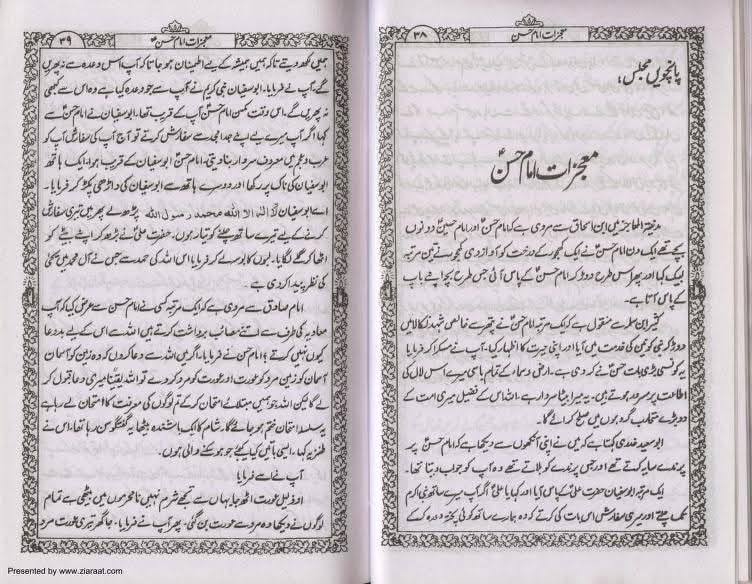 معجزات امام حسنؑ
۳۸
پانچویں مجلس؛
معجزات امام حسنؑ
مدینۃ المعاجز میں ابن اسحاق سے مروی ہے کہ امام حسنؑ اور امام حسینؑ دونوں
بچے تھے ایک دن امام حسنؑ نے ایک کھجور کے درخت کو آواز دی کھجور نے تین مرتبہ
لبیک کہا اور پھر اس طرح دوڑ کر امام حسنؑ کے پاس آئی جس طرح بچہ اپنے باپ
کے پاس آتا ہے۔
کثیر ابن سلمہ سے منقول ہے کہ ایک مرتبہ امام حسنؑ نے پتھر سے خالص شہد نکالا میں
دوڑ کر نبی کونین کی خدمت میں آیا اور اپنی حیرت کا اظہار کیا۔ آپ نے مسکرا کر فرمایا
یہ کونسی بڑی بات حسنؑ نے کر دی ہے۔ ارضی و سماء کے تمام باسی میرے اس لال کی
اطاعت پر مسرور ہوتے ہیں۔ یہ میرا بیٹا سردار ہے۔ اللہ اس کے طفیل میری امت کے
دو بڑے متحارب گروہوں میں صلح کرائے گا۔
ابو سعید خدری کہتا ہے کہ میں نے اپنی آنکھوں سے دیکھا ہے کہ امام حسنؑ پر
پرندے سایہ کرتے تھے اور جس پرندے کو بلاتے تھے وہ آپ کو جواب دیتا تھا۔
ایک مرتبہ ابوسفیان حضرت علیؑ کے پاس آیا اور کہا یا علیؑ اگر آپ میرے ساتھ نبی اکرم
تک چلتے اور میری سفارش اس بات کی کرتے کہ وہ ہمارے ساتھ کوئی پختہ وعدہ کر کے
معجزات امام حسنؑ
۳۹
ہمیں لکھ دیتے تاکہ ہمیں ہمیشہ کے لیے اطمینان ہو جاتا کہ آپ اس وعدہ سے نہ پھریں
گے۔ آپ نے فرمایا۔ ابوسفیان نبی کریم نے آپ سے جو وعدہ کیا ہے وہ اس سے کبھی
نہ پھریں گے۔ اس وقت کمسن امام حسنؑ آپ کے قریب تھا۔ ابوسفیان نے امام حسنؑ سے
کہا اگر آپ میرے لیے اپنے جد امجد سے سفارش کرتے تو آج آپ کی سفارش آپ کو
عرب و عجم میں معروف سردار بنا دیتی، امام حسنؑ ابوسفیان کے قریب ہوا، ایک ہاتھ
ابوسفیان کی ناک پر رکھا اور دوسرے ہاتھ سے ابوسفیان کی داڑھی پکڑ کر فرمایا۔
اے ابوسفیان لا الہ الا اللہ محمد رسول اللہ پڑھ لے پھر میں تیری سفارش
کرنے کے لیے تیرے ساتھ چلنے کو تیار ہوں۔ حضرت علیؑ نے بڑھ کر اپنے بیٹے کو
اٹھا کر گلے لگایا۔ لبوں کا بوسہ لے کر فرمایا اس اللہ کی حمد ہے جس نے آل محمد میں یحییٰ
کی نظیر پیدا کر دی ہے
امام صادقؑ سے مروی ہے کہ ایک مرتبہ کسی نے امام حسنؑ سے عرض کیا کہ آپ
معاویہ کی طرف سے اتنے مصائب برداشت کرتے ہیں اللہ سے اس کے لیے بددعا
کیوں نہیں کرتے؛ امام حسنؑ نے فرمایا۔ اگر میں اللہ سے دعا کروں کہ وہ زمین کو آسمان
آسمان کو زمین مرد کو عورت اور عورت کو مرد کر دے تو اللہ یقیناً میری دعا قبول کر
لے گا لیکن اللہ جو ہمیں مبتلائے امتحان کر کے تم لوگوں کی معرفت کا امتحان لے رہا ہے
یہ سلسلہ امتحان ختم ہو جائے گا، شام کا ایک باشندہ بیٹھا یہ گفتگو سن رہا تھا، اس نے
طنزیہ کہا۔ ایسی باتیں کیا کیجئے جو ہو سکنے والی ہوں۔
آپ نے اسے فرمایا
او ذلیل عورت اٹھ جا یہاں سے تجھے شرم نہیں نامحرموں میں بیٹھی ہے تمام
لوگوں نے دیکھا وہ مرد سے عورت بن گئی۔ پھر آپ نے فرمایا۔ جا گھر تیری عورت مرد
Presented by www.ziaraat.com